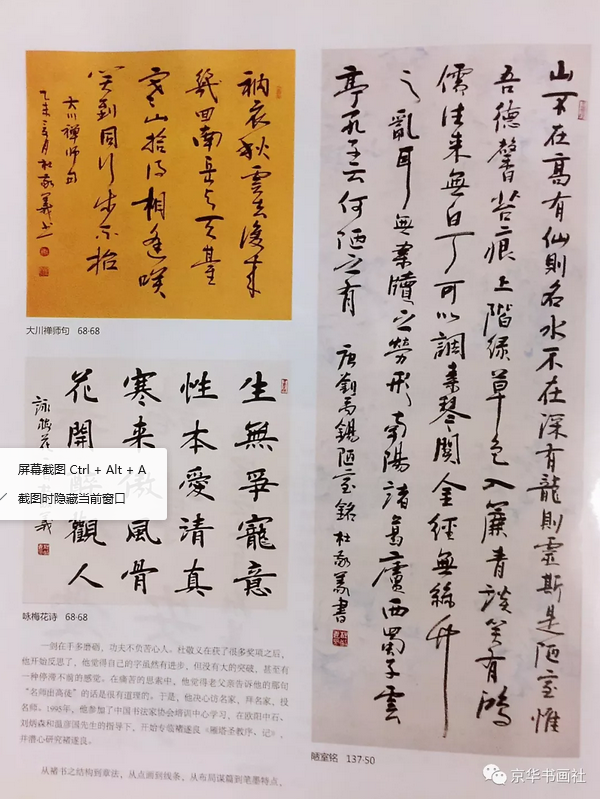 衲衣秋雲去復来
幾回南岳与天臺
寒山拾得相逢咲
笑到同行步不抬
大川禅师句
乙未三月杜敬義书
大川禅师句 68·68
生無爭寵意
性本愛清真
寒来傲風骨
花開觀人
詠梅花 義
屏幕截图 Ctrl + Alt + A
截图时隐藏当前窗口
咏梅花诗 68·68
一剑在手多磨砺，功夫不负苦心人。杜敬义在获了很多奖项之后，
他开始反思了，他觉得自己的字虽然有进步，但没有大的突破，甚至有
一种停滞不前的感觉。在痛苦的思索中，他觉得老父亲告诉他的那句
“名师出高徒”的话是很有道理的。于是，他决心访名家，拜名家，投
名师。1995年，他参加了中国书法家协会培训中心学习，在欧阳中石、
刘炳森和温彦国先生的指导下，开始专临褚遂良《雁塔圣教序、记》，
并潜心研究褚遂良。
从褚书之结构到章法，从点画到线条，从布局谋篇到笔墨特点，
山不在高有仙則名水不在深有龍則靈斯是陋室惟
吾德馨苔痕上階緑草色入簾青談笑有鴻
儒往来無白丁可以調素琴閱金經無絲竹
之亂耳無案牘之勞形南陽諸葛廬西蜀子雲
亭孔子云何陋之有
唐劉禹錫陋室銘杜敬義書
陋室铭 137·50
京华书画社